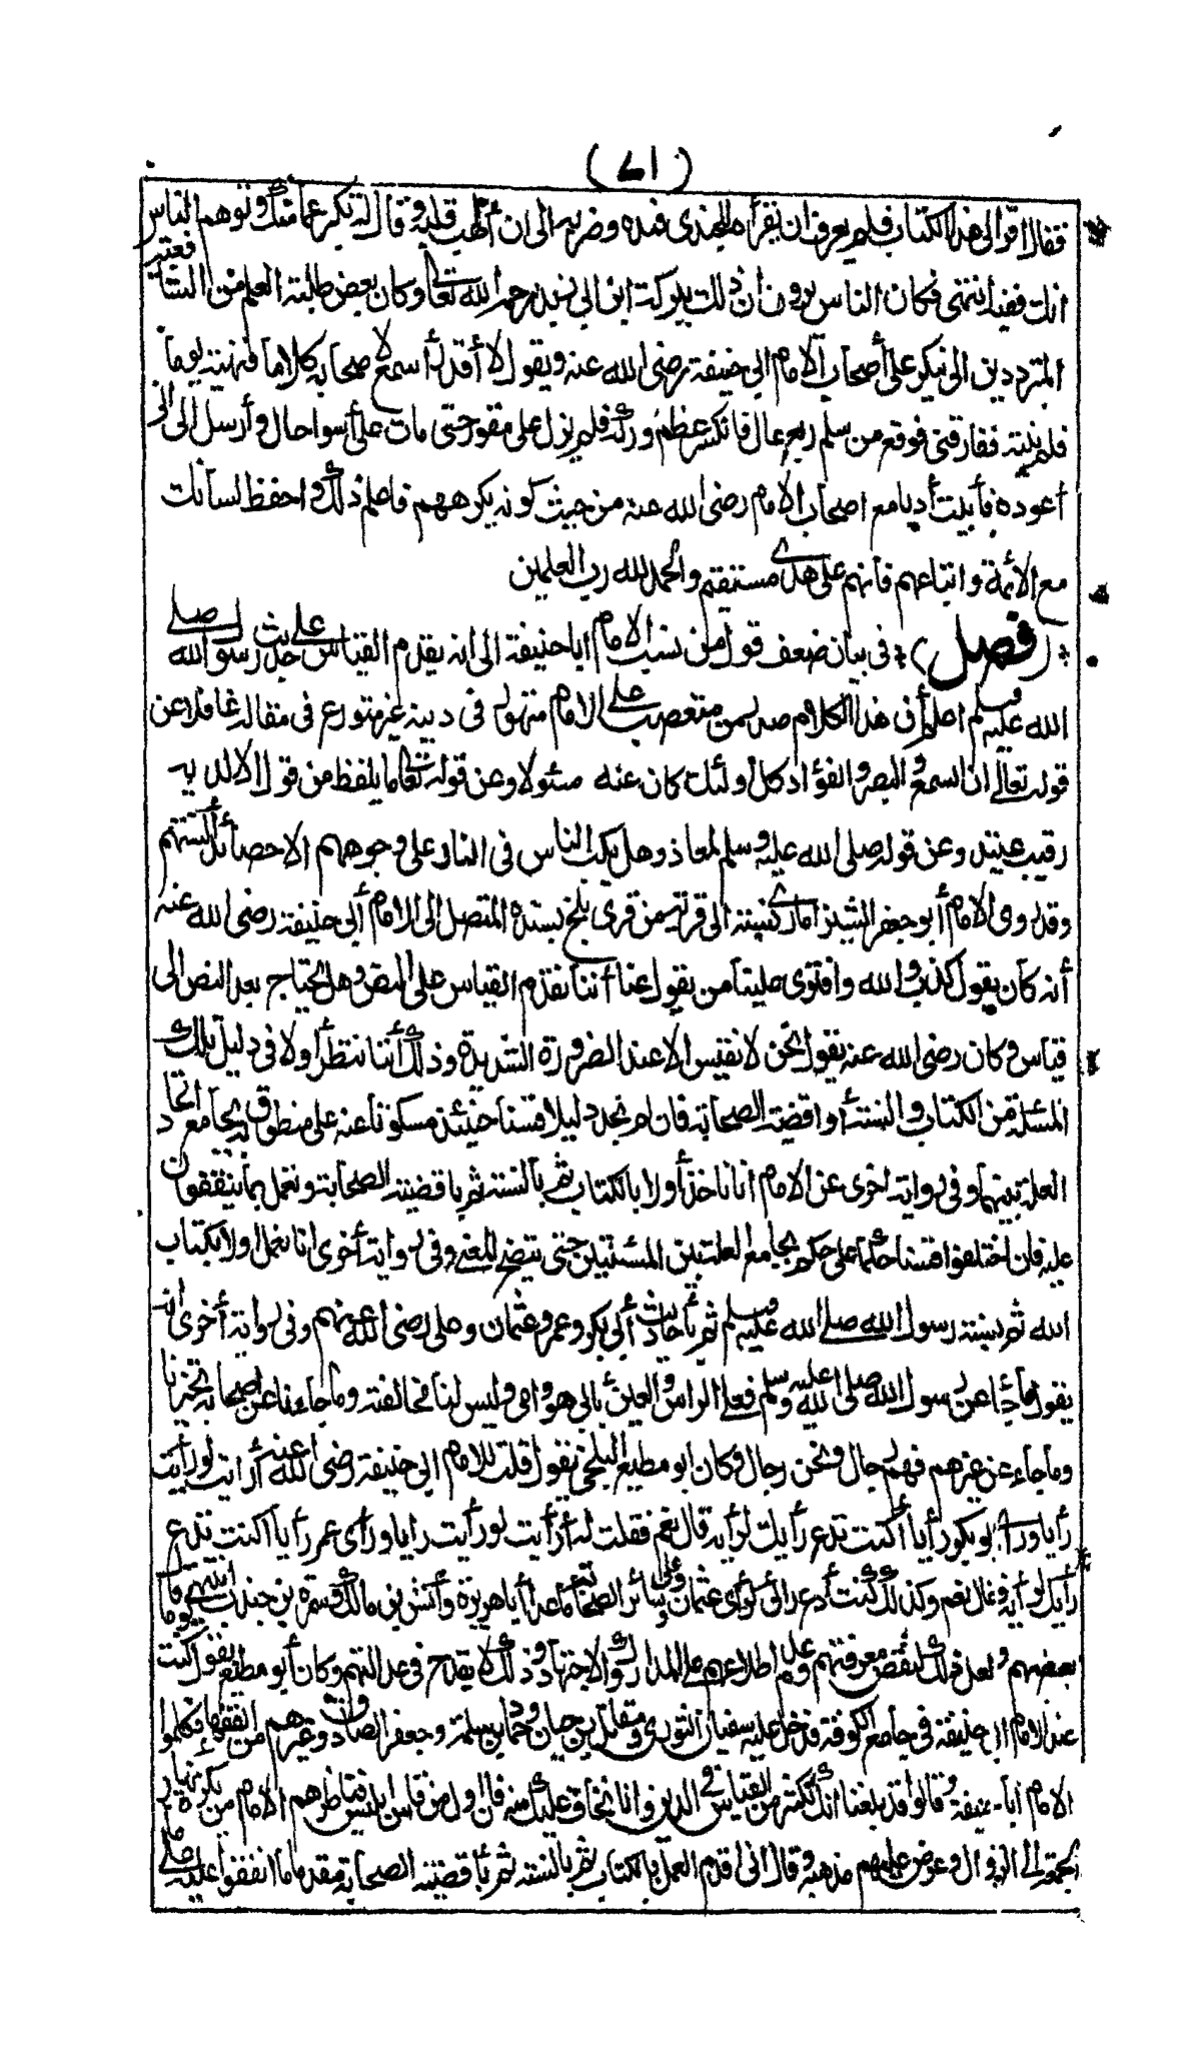 (٧١)
فقال اقرأ لى هذا الكتاب فلم يعرف ان يقرأه للجندى فمده وضربه الى ان ألهب قلبه وقال له تكبر عمامتك وتوهم الناس
انك فقيه انتهى فكان الناس يرون أن ذلك ببركة ابن ابي زيد رحمه الله تعالى وكان بعض طلبة العلم من الشافعية
المترددين الى ينكر على أصحاب الامام ابي حنيفة رضى الله عنه ويقول لا أقدر أسمع لاصحابه كلاما فنهيته يوما
فلم ينته ففارقنى فوقع من سلم ربع عال فانكسر عظم وركه فلم يزل على مقعر حتى مات على أسوا حال وأرسل الى انى
أعوده فأبيت أدبا مع اصحاب الامام رضى الله عنه من حيث كونه يكرههم فاعلم ذلك واحفظ لسانك
مع الائمة واتباعهم فانهم على هدى مستقيم والحمد لله رب العلمين
(فصل) فى بيان ضعف قول من نسب الامام ابا حنيفة الى انه يقدم القياس على حديث رسول الله صلى
الله عليه وسلم اعلم أن هذا الكلام صدر من متعصب على الامام متهور فى دينه غير متورع فى مقاله غافلا عن
قوله تعالى ان السمع والبصر والفؤاد كل اولئك كان عنه مسئولا وعن قوله تعالى ما يلفظ من قول الا لديه
رقيب عتيد وعن قوله صلى الله عليه وسلم لمعاذ وهل يكب الناس فى النار على وجوههم الا حصائد ألسنتهم
وقد روى الامام أبو جعفر الشيزامارى نسبة الى قرية من قرى بلخ بسنده المتصل الى الامام أبي حنيفة رضى الله عنه
أنه كان يقول كذب والله وافترى علينا من يقول عنا أننا نقدم القياس على النص وهل يحتاج بعد النص الى
قياس وكان رضى الله عنه يقول نحن لا نقيس الا عند الضرورة الشديدة وذلك أننا ننظر أولا فى دليل تلك
المسئلة من الكتاب والسنة أو اقضية الصحابة فان لم نجد دليلا قسنا حينئذ مسكوتا عنه على منطوق به بجامع اتحاد
العلة بينهما وفى رواية اخرى عن الامام انا ناخذ أولا بالكتاب ثم بالسنة ثم باقضية الصحابة ونعمل بما يتفقون
عليه فان اختلفوا قسنا حكما على حكم بجامع العلة بين المسئلتين حتى يتضح المعنى وفى رواية أخرى انا نعمل اولا بكتاب
الله ثم بسنة رسول الله صلى الله عليه وسلم ثم بأحاديث أبي بكر وعمر وعثمان وعلى رضى الله عنهم وفى رواية أخرى انه
يقول ما جاء عن رسول الله صلى الله عليه وسلم فعلى الراس والعين بابي هو وامى وليس لنا مخالفته وما جاءنا عن اصحابه تخيرنا
وما جاء عن غيرهم فهم رجال ونحن رجال وكان ابو مطيع البلخى يقول قلت للامام ابي حنيفة رضى الله عنه أرايت لو رأيت
رأيا ورأى ابو بكر رأيا أكنت تدع رأيك لرأيه قال نعم فقلت له أرأيت لو رأيت رايا وراى عمر رأيا اكنت تدع
رأيك لرأيه فقال نعم وكذلك كنت أدع رائى لرأى عثمان وعلى وسائر الصحابة ما عدا أبا هريرة وأنس بن مالك وسمرة بن جندب انتهى قال
بعضهم ولعل ذلك لنقص معرفتهم وعدم اطلاعهم على مدارك الاجتهاد وذلك لا يقدح فى عدالتهم وكان أبو مطيع يقول كنت يوما
عند الامام ابي حنيفة فى جامع الكوفة فدخل عليه سفيان الثورى ومقاتل بن حيان وحماد بن سلمة وجعفر الصادق وغيرهم من الفقهاء فكلموا
الامام أبا حنيفة وقالوا قد بلغنا انك تكثر من القياس فى الدين وانا نخاف عليك منه فان اول من قاس ابليس فناظرهم الامام من بكرة نهار
الجمعة الى الزوال وعرض عليهم مذهبه وقال انى اقدم العمل بالكتاب ثم بالسنة ثم بأقضية الصحابة مقدما ما اتفقوا عليه على ما